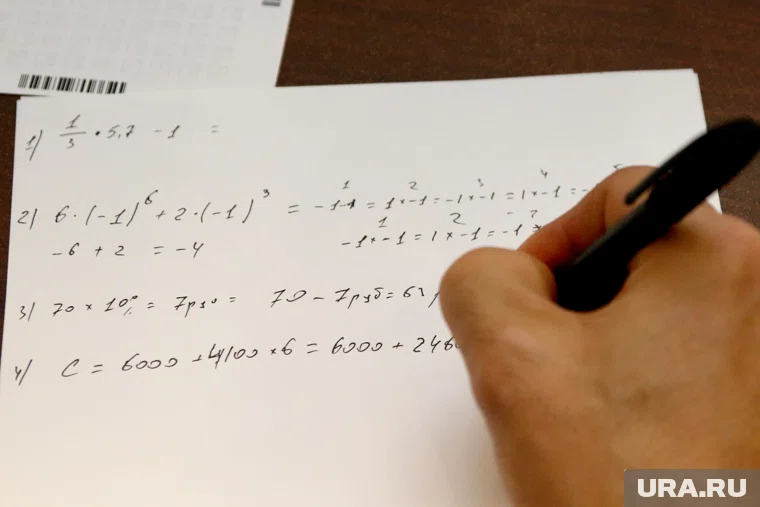 1) 1/3 · 5,7 - 1 =
2) 6 · (-1)⁶ + 2 · (-1)³ = -1·-1 = 1×-1 = -1×-1 = 1×-1 = -
1 2 3 4
-1×-1 = 1×-1 = -1
1 2
-6 + 2 = -4
3) 70 × 10% = 7руб = 70 - 7руб = 63
4) C = 6000 + 4100 × 6 = 6000 + 2460
URA.RU